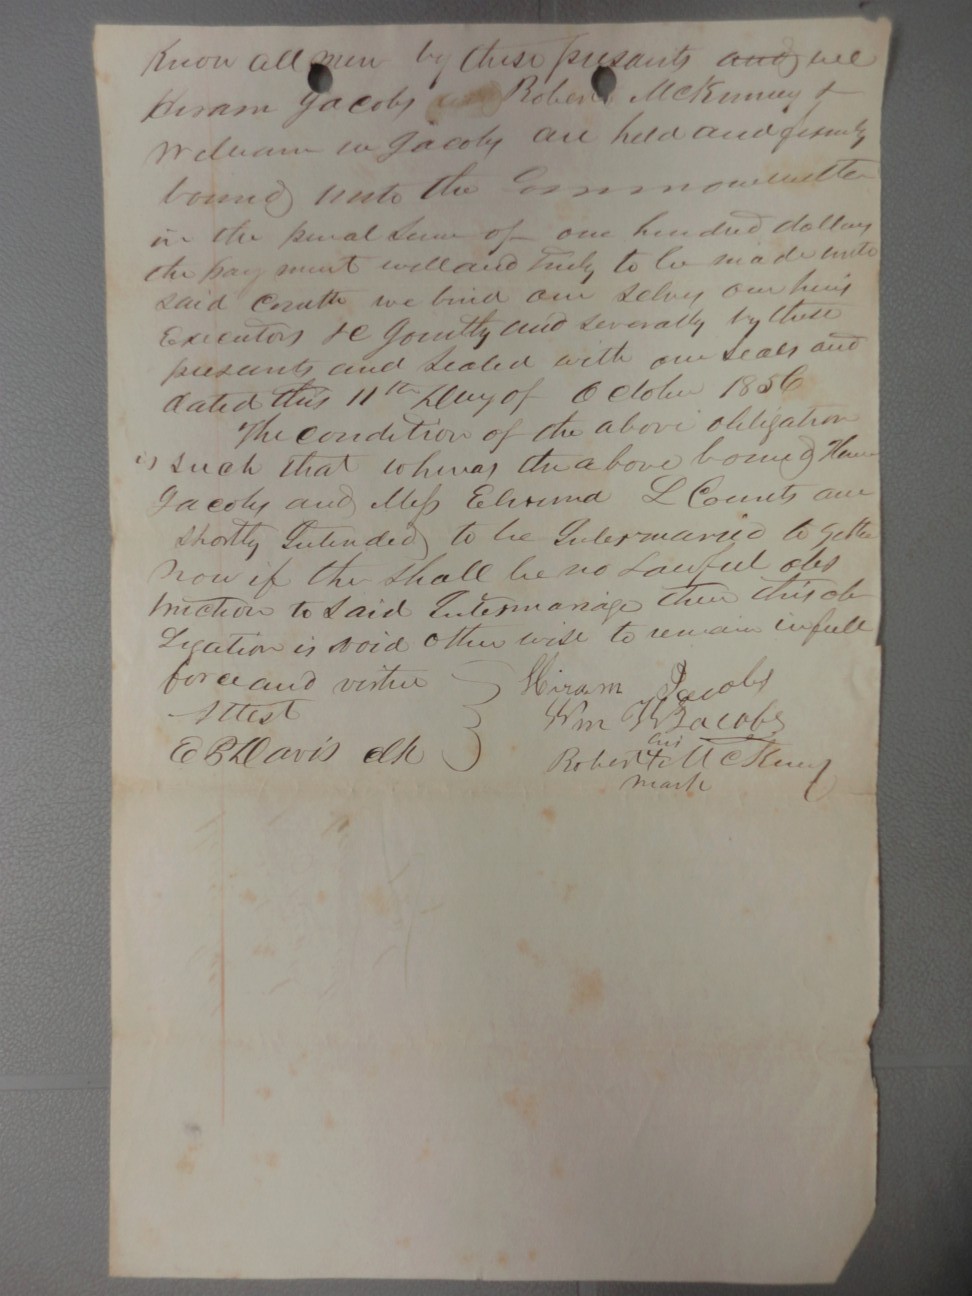 Know all men by these presants and we
Hiram Jacobs Robert McKinney &
William W Jacobs are held and firmly
bound unto the Commonwealth
in the penal Sum of one hundred dollars
the payment well and truly to be made unto
said Comth we bind our selvs our heirs
Executors &c Jointly and severally by these
presants and sealed with our seals and
dated this 11th Day of October 1856
The condition of the above obligation
is such that whereas the above bound Hiram
Jacobs and Miss L Counts are
shortly Intended to be Intermarried to gether
Now if the shall be no Lawful obs
truction to said Intermariage then this ob
ligation is void other wise to remain in full
force and virtue
Hiram Jacobs
Attest
Wm W Jacobs
E B Davis clk
his
Robert X McKiney
mark